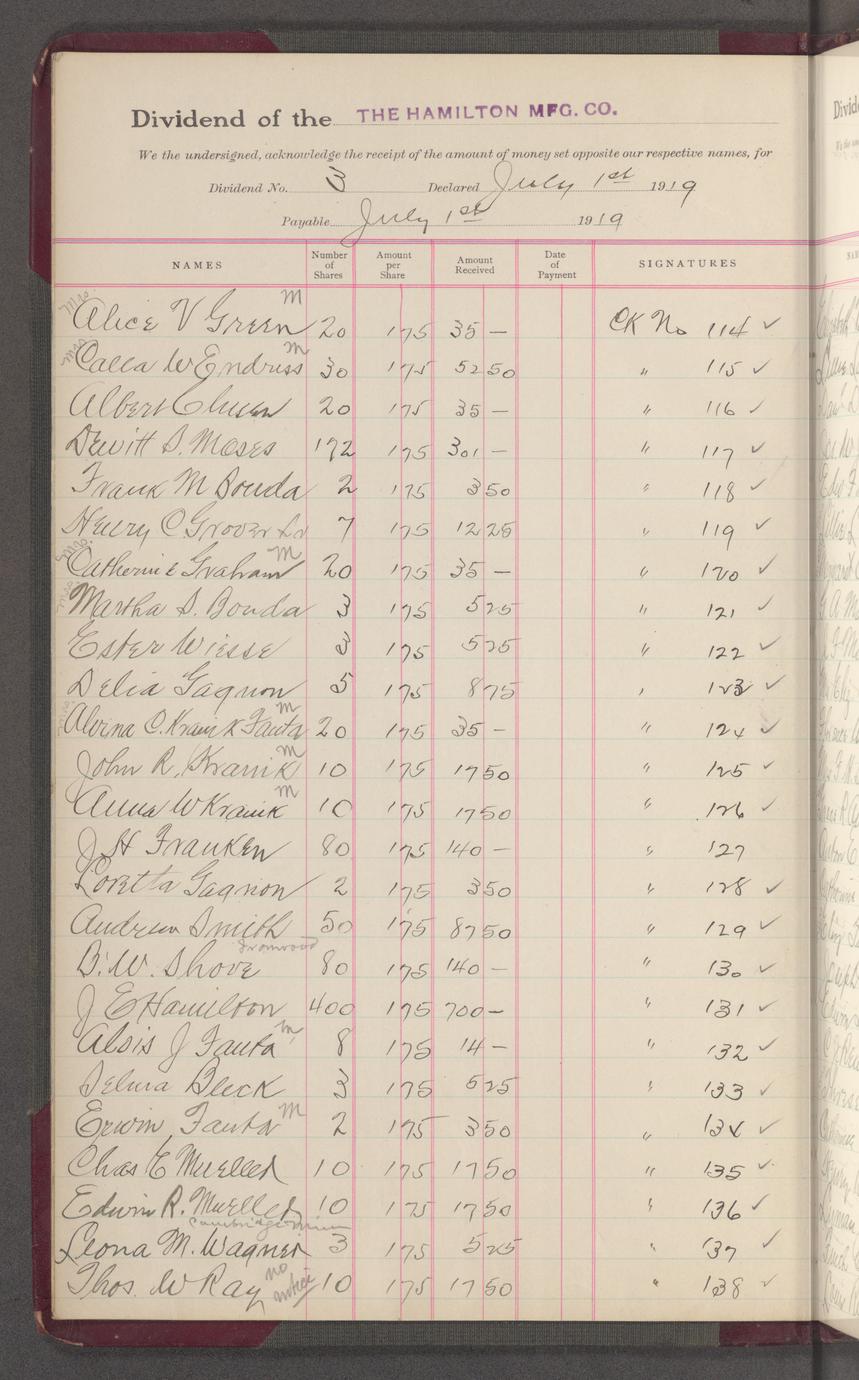 Dividend of the THE HAMILTON MFG. CO.
We the undersigned, acknowledge the receipt of the amount of money set opposite our respective names, for
Dividend No. 3 Declared July 1st 1919
Payable July 1st 1919
NAMES Number of Shares Amount per Share Amount Received Date of Payment SIGNATURES
Mrs. Alice V Green M 20 1 75 35 — CK No 114 ✓
Mrs Calla W Endriss M 30 1 75 52 50 " 115 ✓
Albert 20 1 75 35 — " 116 ✓
Dewitt S. Moses 172 1 75 301 — " 117 ✓
Frank M Bouda 2 1 75 3 50 " 118 ✓
Henry C. Grover 7 1 75 12 25 " 119 ✓
Mrs. Catherine Graham M 20 1 75 35 — " 120 ✓
Mrs Martha S. Bouda 3 1 75 5 25 " 121 ✓
Ester Wiesse 3 1 75 5 25 " 122 ✓
Delia Gagnon 5 1 75 8 75 " 123 ✓
Alvina C. Kranik Fauta M 20 1 75 35 — " 124 ✓
John R. Kranik M 10 1 75 17 50 " 125 ✓
Anna W Kranik M 10 1 75 17 50 " 126 ✓
J H Franken 80 1 75 140 — " 127
Loretta Gagnon 2 1 75 3 50 " 128 ✓
Andrew Smith 50 1 75 87 50 " 129 ✓
Ironwood
B. W. Shove 80 1 75 140 — " 130 ✓
J E Hamilton 400 1 75 700 — " 131 ✓
Alois J Fauta M 8 1 75 14 — " 132 ✓
Selma Bleck 3 1 75 5 25 " 133 ✓
Erwin Fauta M 2 1 75 3 50 " 134 ✓
Chas E Mueller 10 1 75 17 50 " 135 ✓
Edwin R. Mueller 10 1 75 17 50 " 136 ✓
Cambridge Minn
Leona M. Wagner 3 1 75 5 25 " 137 ✓
Thos. W Ray no notice 10 1 75 17 50 " 138 ✓